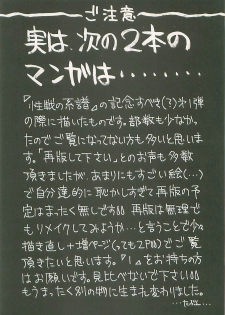 ご注意
実は、次の2本の
マンガは・・・・・・・・
『性戦の系譜』の記念すべき(?)第1弾
の際に描いたものです。部数も少なか。
たのでご覧になってない方も多いと思いま
す。「再版して下さい」とのお声も多数
頂きましたが、あまりにもすごい絵(…)
で自分達的に恥かしすぎて再版の予
定はまったく無しです。再版は無理で
もリメイクしてみようか…と言うことで今々
描き直し+増ページ(つっても2P)でご覧
頂きたいと思います。『1』をお持ちの方
はお願いです。見比べないで下さい
もうまったく別の物に生まれ変わりました。